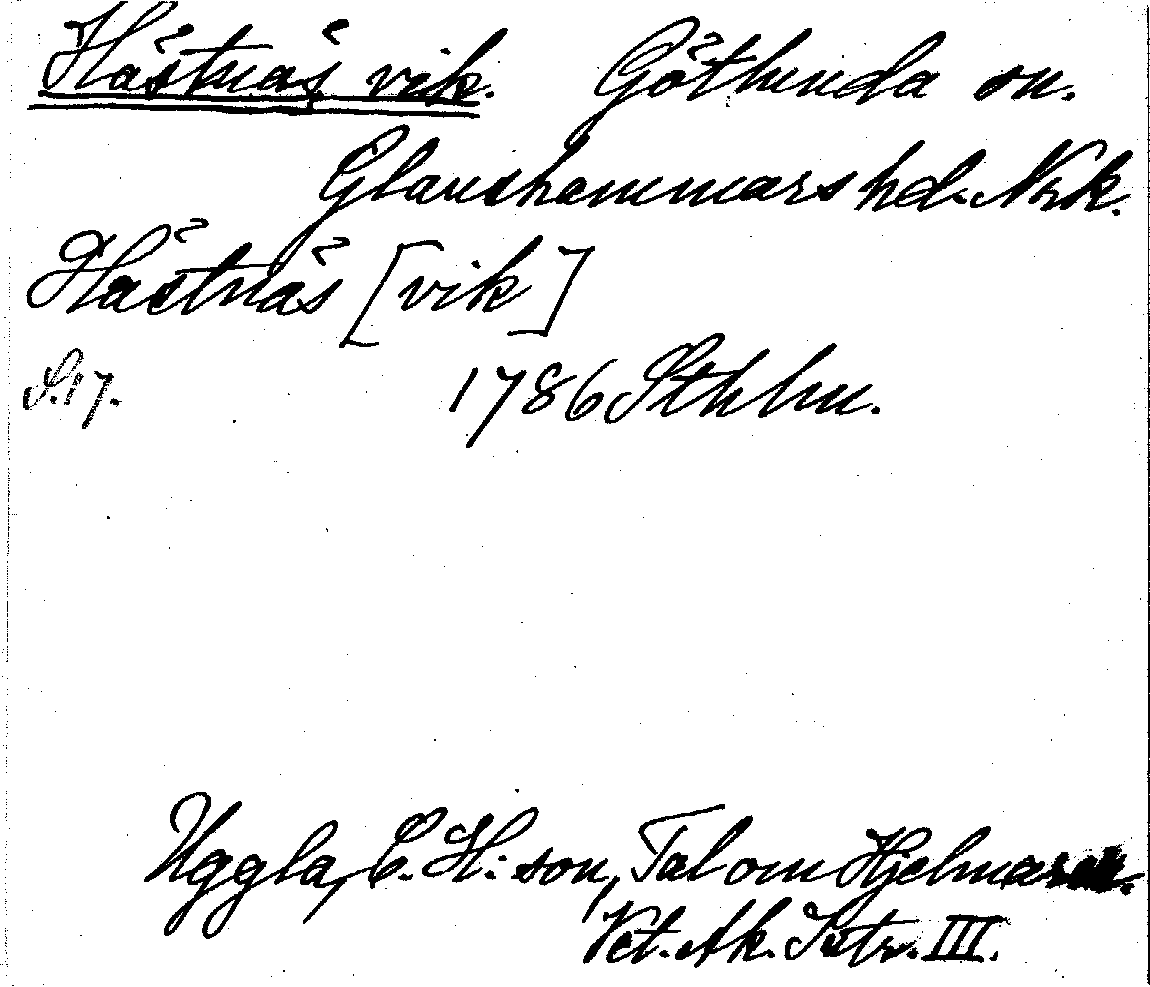 Hästnäs vik. Götlunda sn.
Glanshammars hd. Nrk.
Hästnäs [vik]
S. 17. 1786 Sthlm.
Uggla, C. H:son, Tal om Hjelmaren.
Vet. Ak. Intr. III.